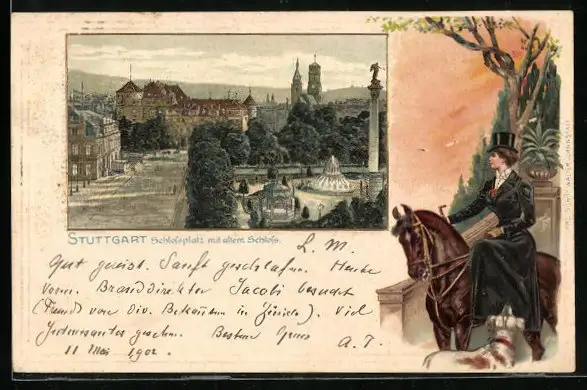 STUTTGART Schloßplatz mit altem Schloss.
L. M.
Gut gereist. Sanft geschlafen. Heute
vorm. Branddirektor Jacobi besucht
(Freund von Div. in Zürich). Viel
Interessantes gesehen. Besten Gruss
A. T.
11 Mai 1902.